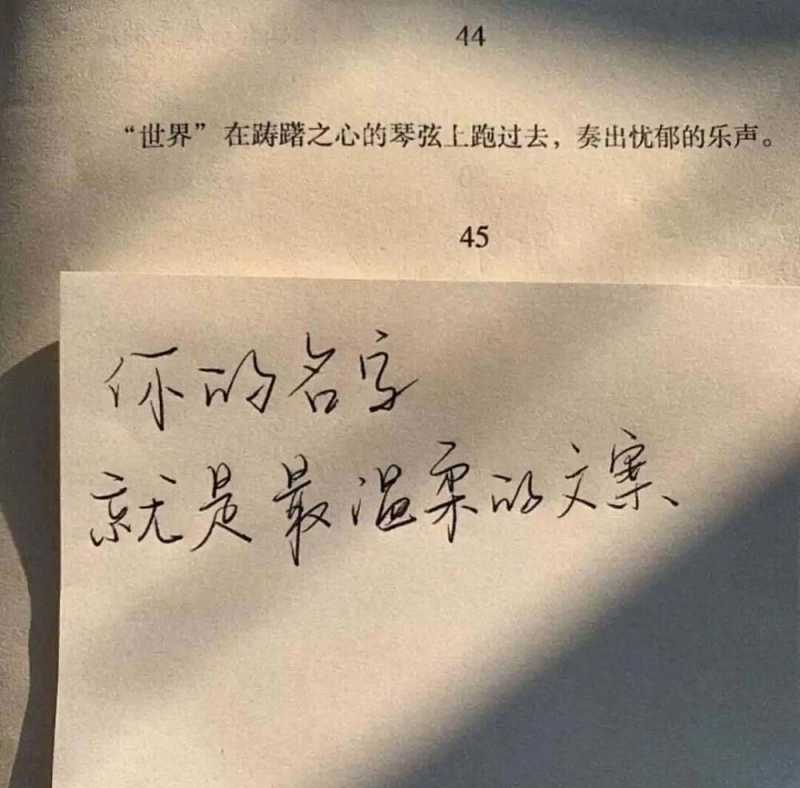 44
“世界”在踌躇之心的琴弦上跑过去，奏出忧郁的乐声。
45
你的名字
就是最温柔的文案